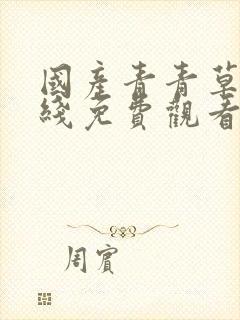 國產青青草
綫免費觀看
周賓